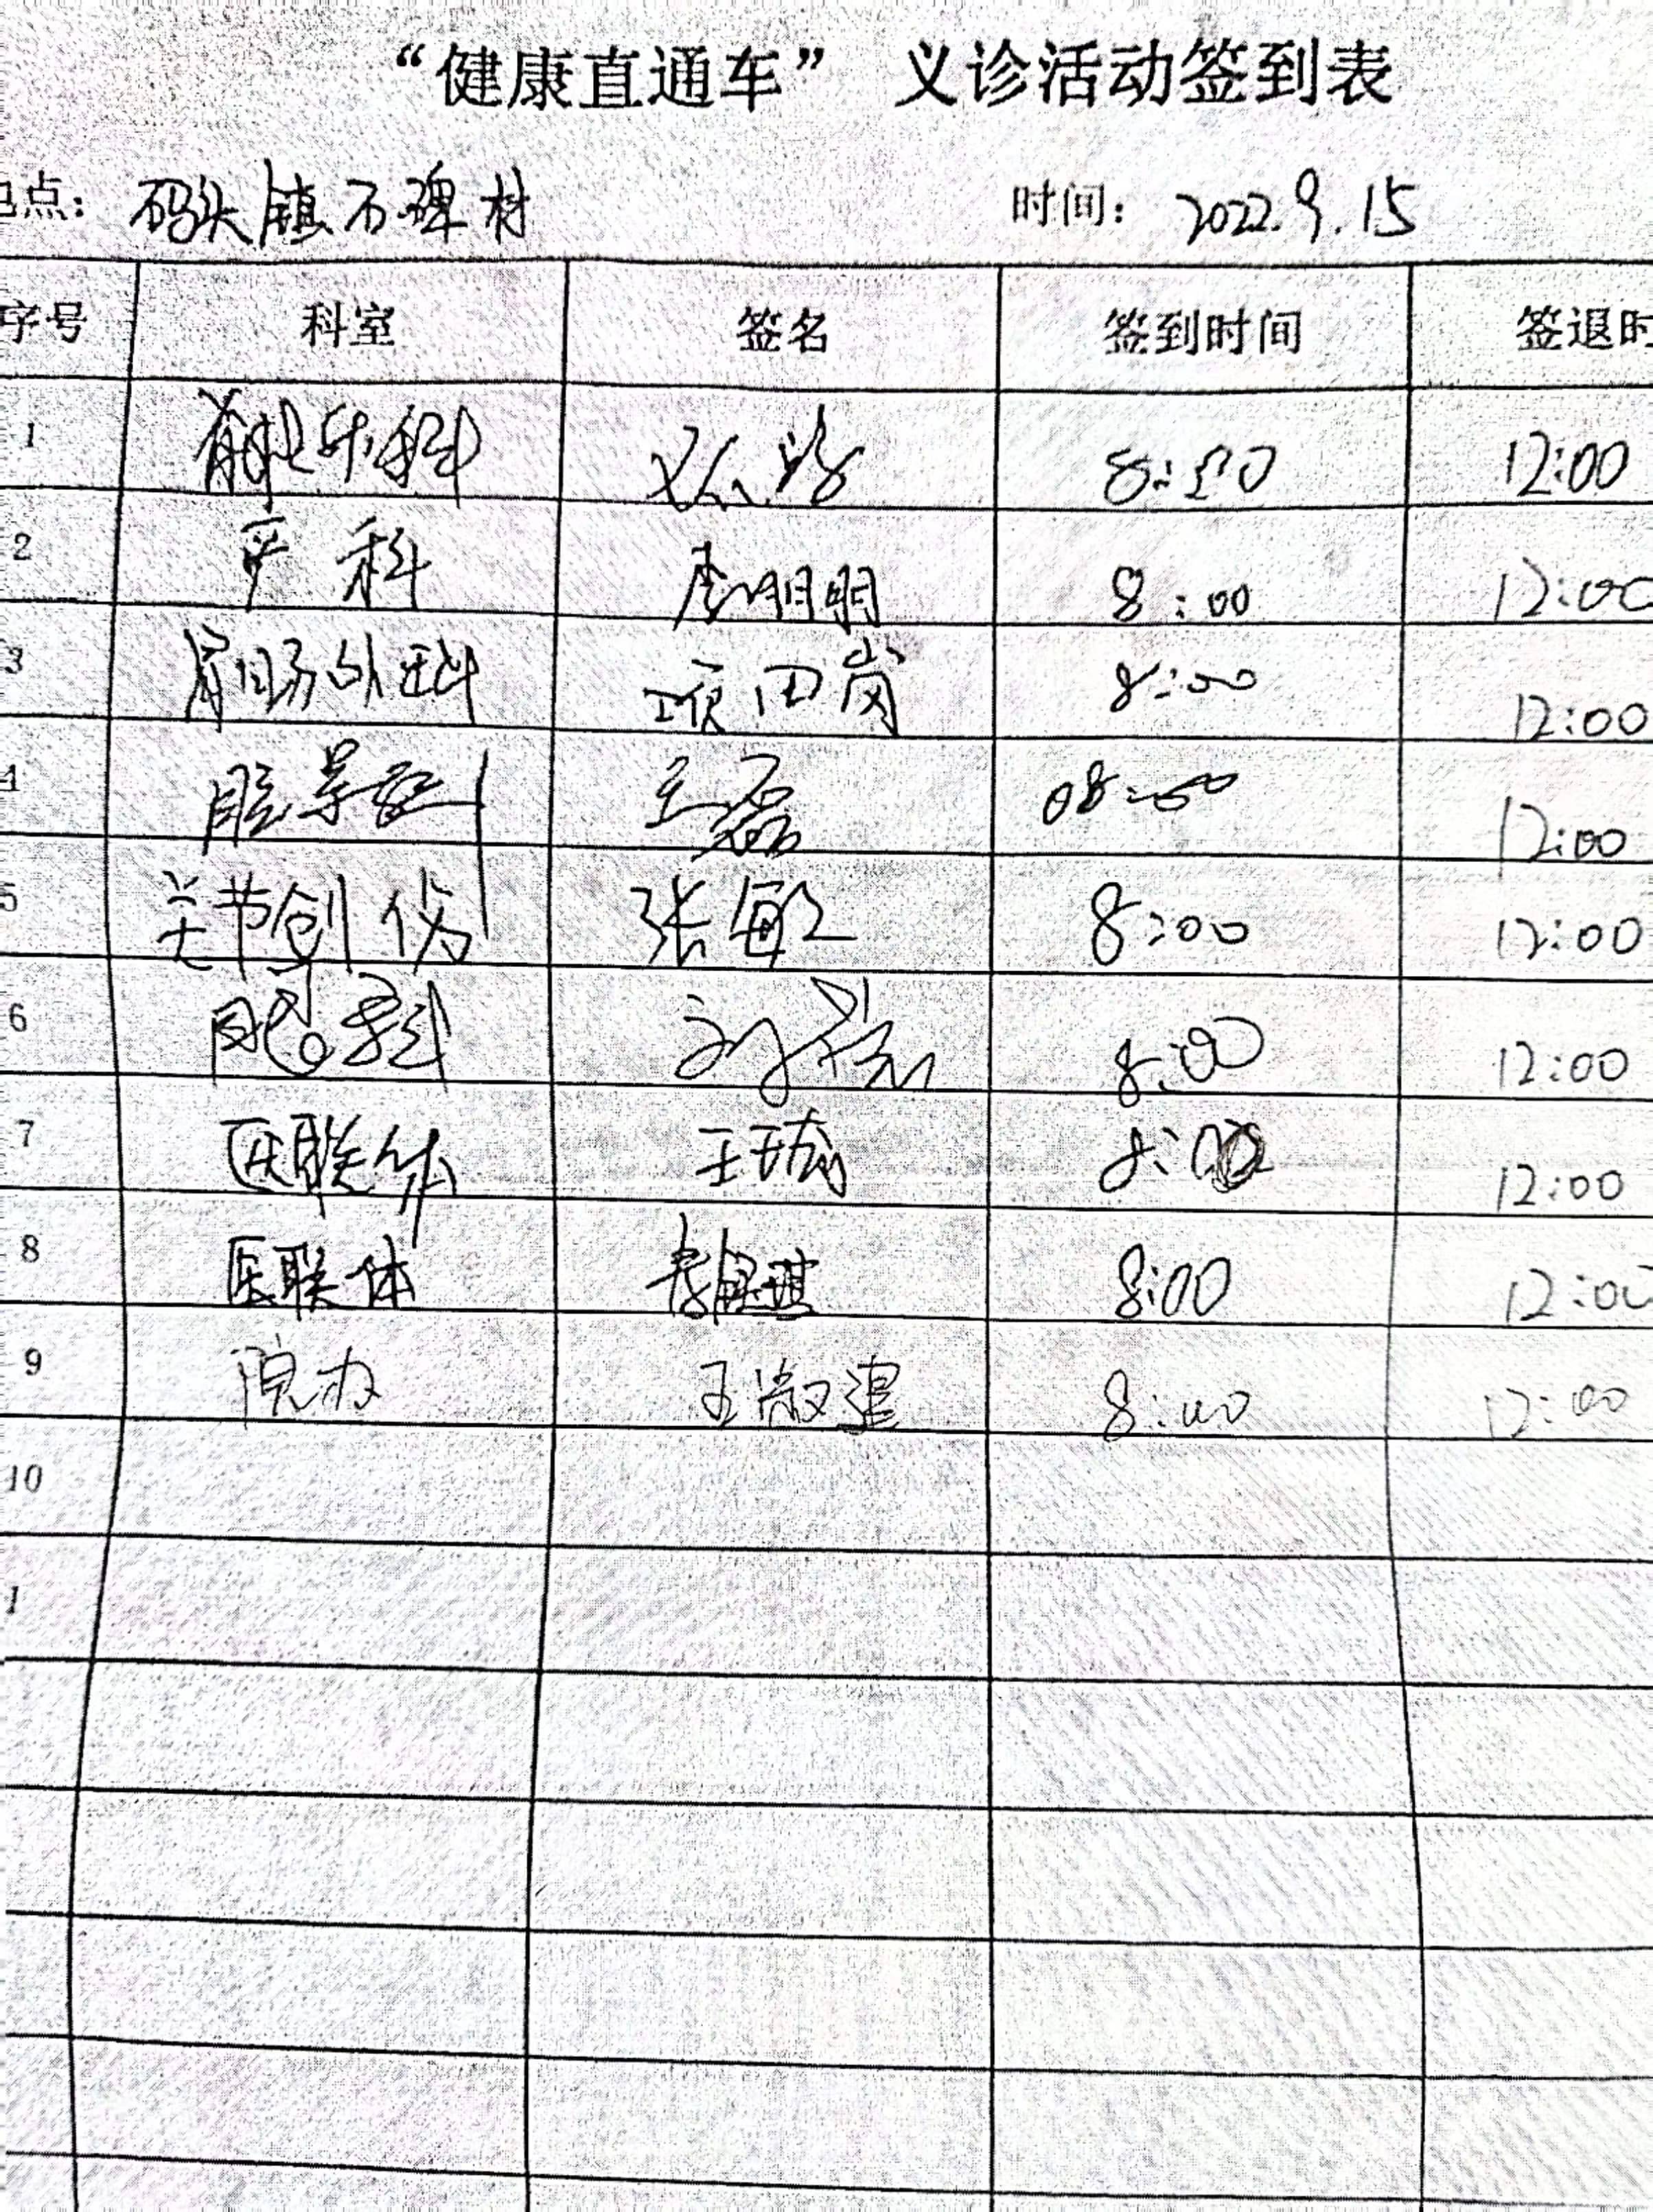 “健康直通车” 义诊活动签到表
点: 码头镇石碑村 时间: 2022.9.15
序号 科室 签名 签到时间 签退时
1 12:00
2 产科 李明明 8:00 12:00
3 胃肠外科 项田岗 8:00 12:00
王磊 08:00 12:00
5 关节创伤 张敏 8:00 12:00
6 8:00 12:00
7 医联体 8:00 12:00
8 医联体 8:00 12:00
9 院办 王淑 8:00 12:00
10